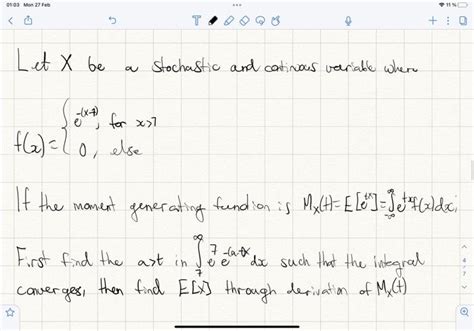 01:03 Mon 27 Feb
11 %
Let X be a stochastic and continous variable where
f(x) = { e^{-(x-7)}, for x>7
0, else
If the moment generating function is M_X(t) = E[e^{tX}] = ∫_{-∞}^{∞} e^{tx} f(x)dx,
First find the a>t in ∫_7^∞ e^7 e^{-(a-t)x} dx such that the integral
converges, then find E[X] through derivation of M_X(t)
4
/
7